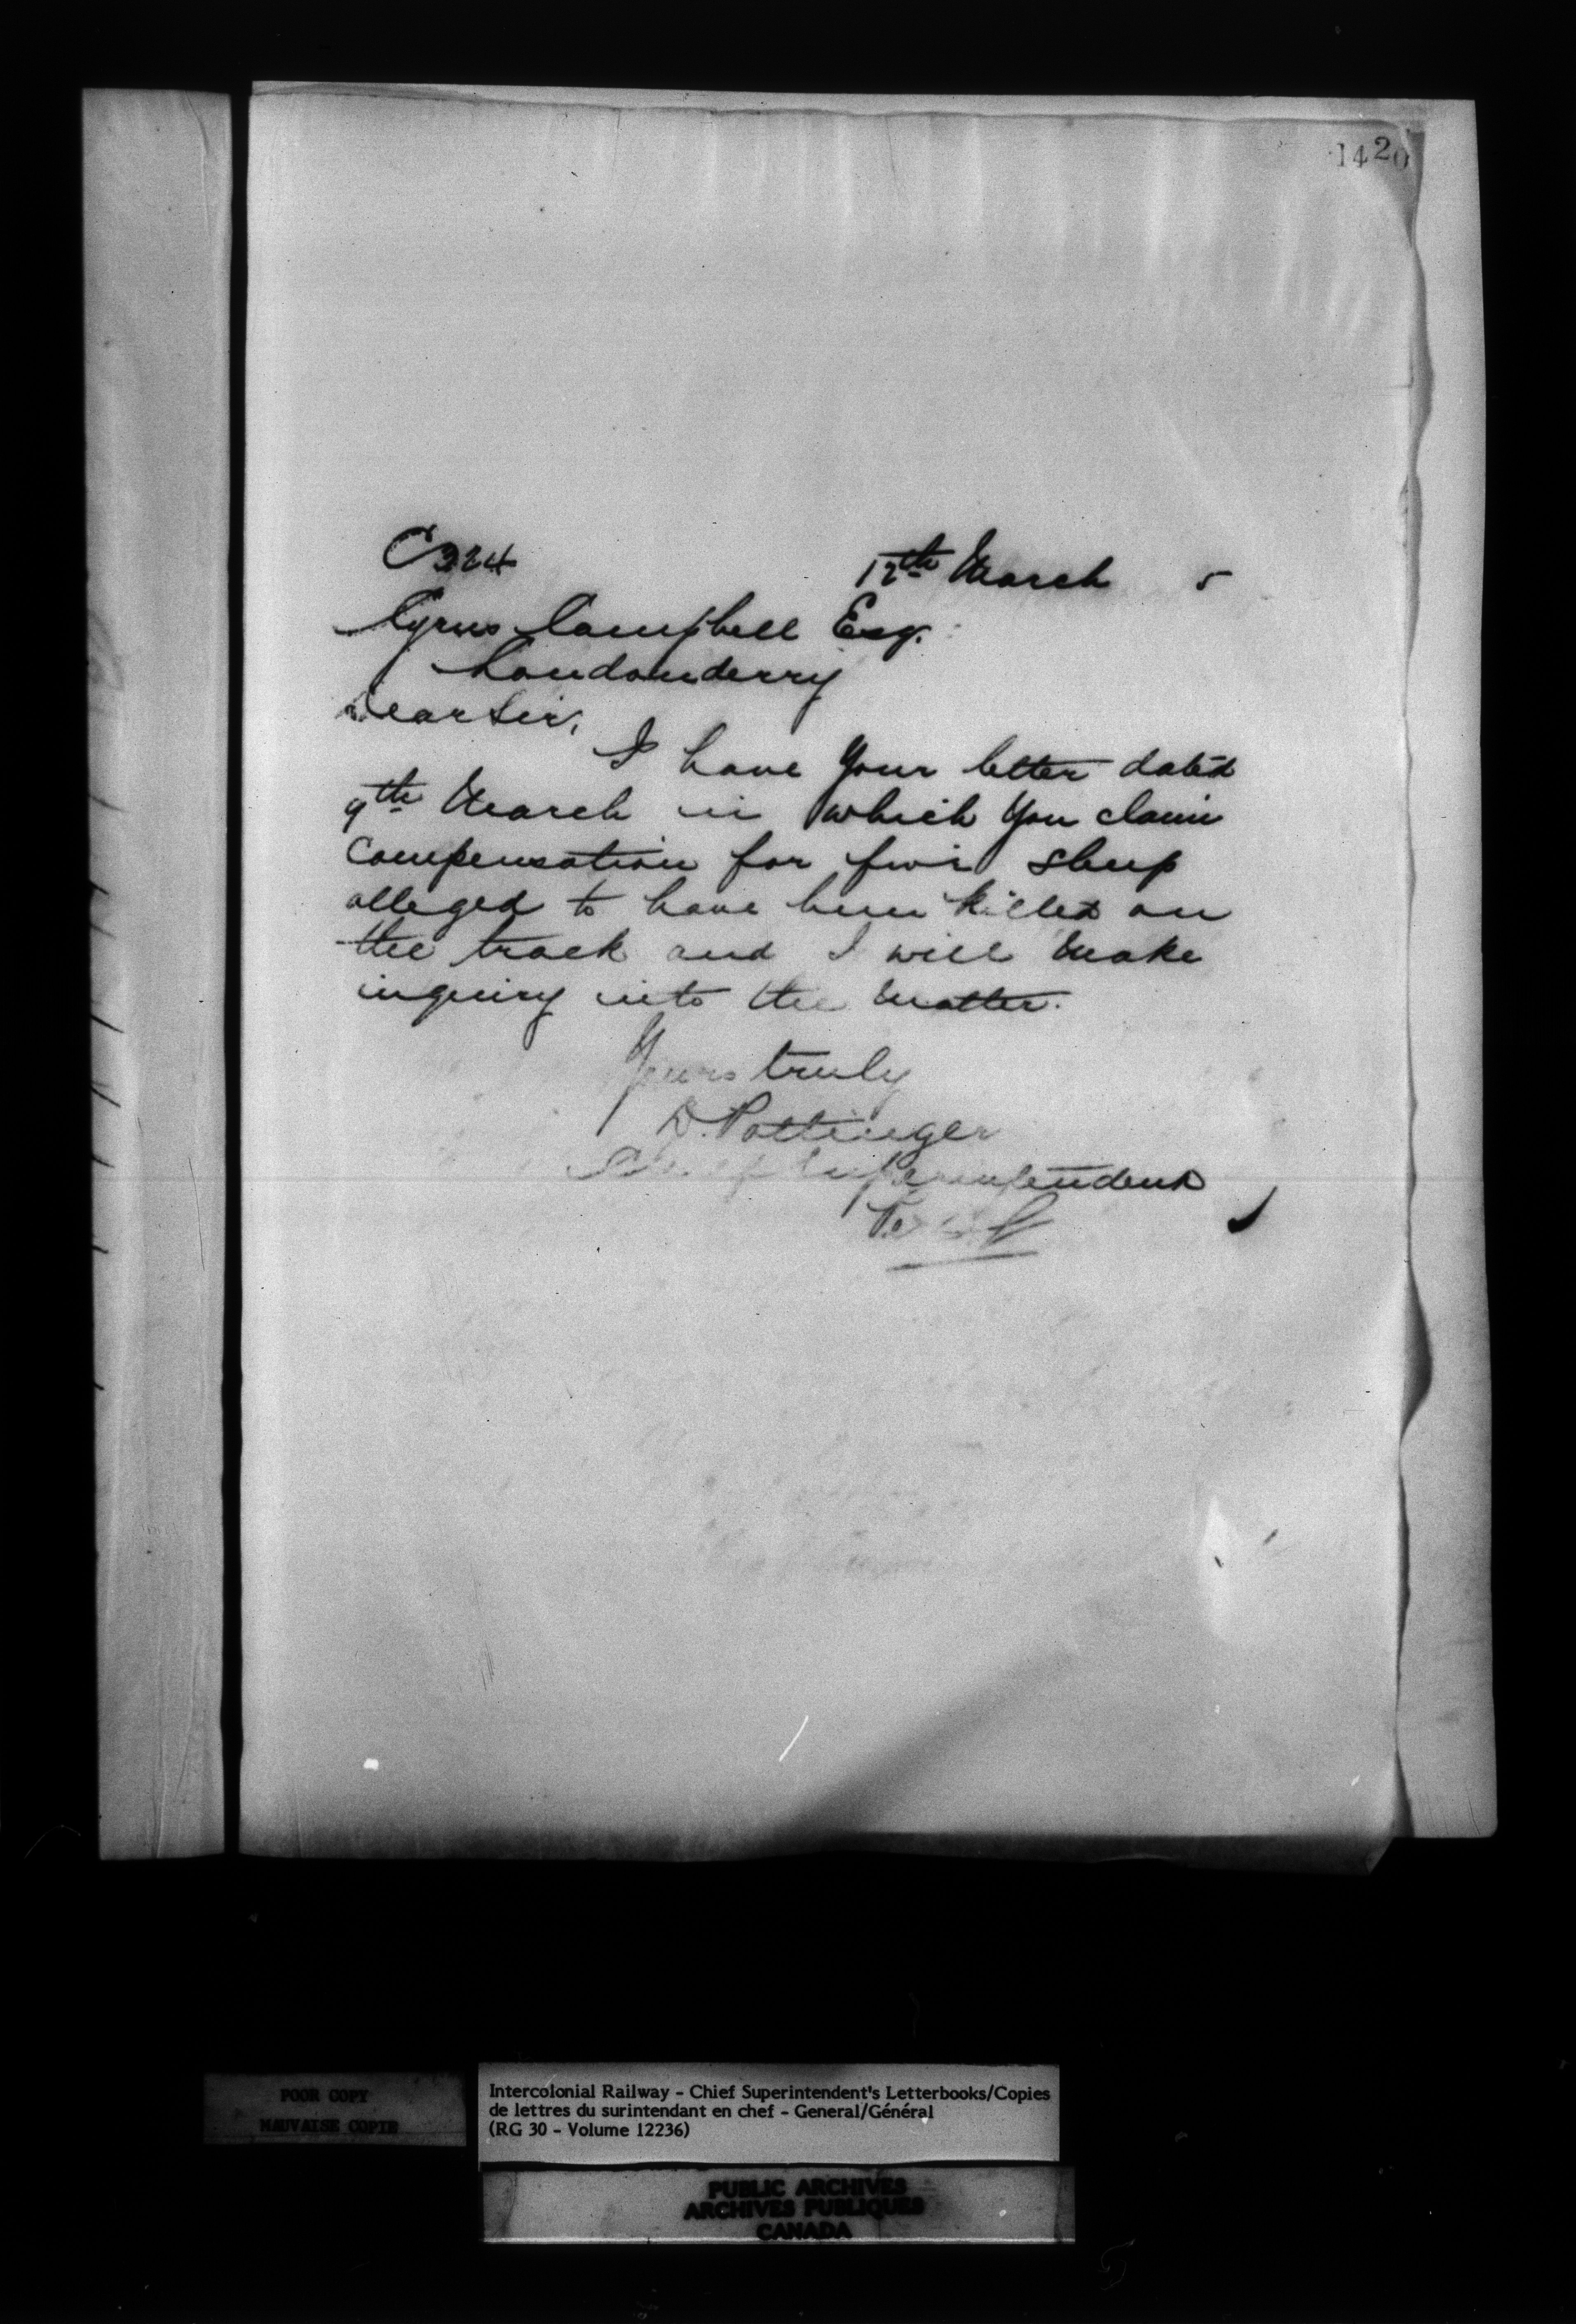 1420
C324 12th March 5
Cyrus Campbell Esq.
Londonderry
Dear Sir,
I have your letter dated
9th March in which you claim
compensation for five sheep
alleged to have been killed on
the track and I will make
inquiry into the matter.
Yours truly
D. Pottinger
Chief Superintendent
POOR COPY
MAUVAISE COPIE
Intercolonial Railway - Chief Superintendent's Letterbooks/Copies
de lettres du surintendant en chef - General/Général
(RG 30 - Volume 12236)
PUBLIC ARCHIVES
ARCHIVES PUBLIQUES
CANADA